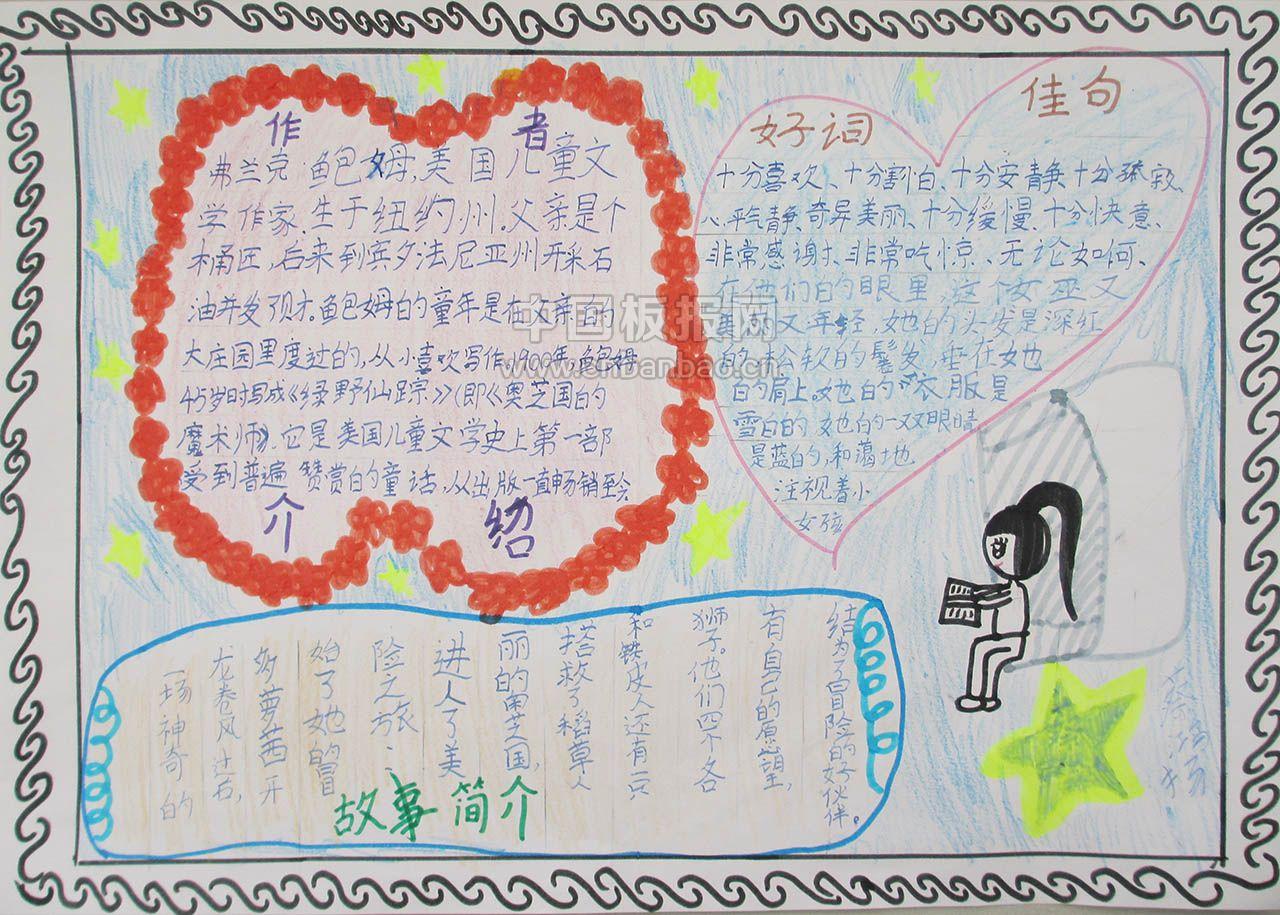 作者
弗兰克·鲍姆,美国儿童文
学作家.生于纽约州.父亲是个
桶匠,后来到宾夕法尼亚州开采石
油并发现才.鲍姆的童年是在父亲的
大庄园里度过的,从小喜欢写作.1900年,鲍姆
45岁时写成《绿野仙踪》(即《奥芝国的
魔术师》.它是美国儿童文学史上第一部
受到普遍赞赏的童话,从出版一直畅销至今
介绍
好词
佳句
十分喜欢、十分害怕、十分安静、十分
心平气静、奇异美丽、十分缓慢、十分快意、
非常感谢、非常吃惊、无论如何、
在他们的眼里,这个女巫又
美丽又年轻,她的头发是深红
的松软的鬈发,垂在她
的肩上。她的衣服是
雪白的,她的一双眼睛
是蓝的,和蔼地
注视着小
女孩
一场神奇的
龙卷风过后,
多萝茜开
始了她的冒
险之旅…
进入了美
丽的奥芝国,
搭救了稻草人
和铁皮人还有一只
狮子。他们四个各
有自己的愿望,
结为了冒险的好伙伴。
故事简介
中国板报网
www.cnbanbao.cn